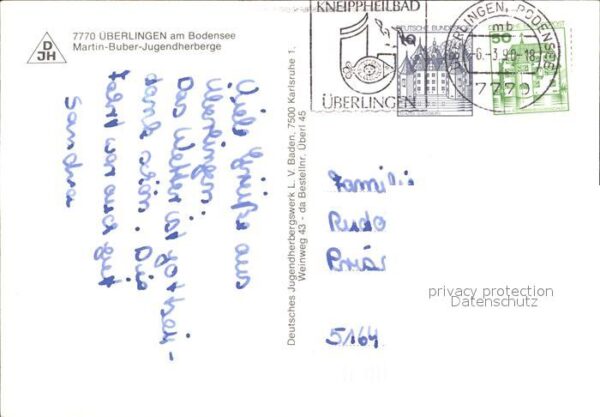 7770 ÜBERLINGEN am Bodensee
Martin-Buber-Jugendherberge
DJH
Viele Grüße aus
Überlingen.
Das Wetter ist gott sei
dank schön. Die
Fahrt war auch gut
Sandra
Deutsches Jugendherbergswerk L. V. Baden, 7500 Karlsruhe 1,
Weinweg 43 - da Bestellnr. Überl 45
KNEIPPHEILBAD
ÜBERLINGEN
DEUTSCHE BUNDESPOST
ÜBERLINGEN, BODENSEE
mb
-6.-3.90-18
7770
50
Familie
5164
privacy protection
Datenschutz